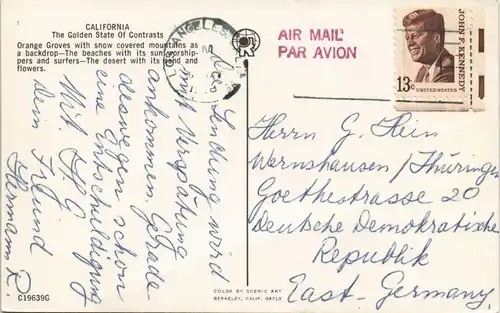 CALIFORNIA
The Golden State Of Contrasts
Orange Groves with snow covered mountains as
a backdrop—The beaches with its sun worship-
pers and surfers—The desert with its sand and
flowers.
LOS ANGELES
AIR MAIL
PAR AVION
JOHN F. KENNEDY
13c
UNITED STATES
Sendung wird
mit Verspätung
ankommen. Gerade
deswegen schon
eine Entschuldigung
Mit F.G.
dein Freund
Hermann R.
Herrn G. Hein
Wernshausen/Thüringen
Goethestrasse 20
Deutsche Demokratische
Republik
East-Germany
C19639G
COLOR BY SCENIC ART
BERKELEY, CALIF. 94710